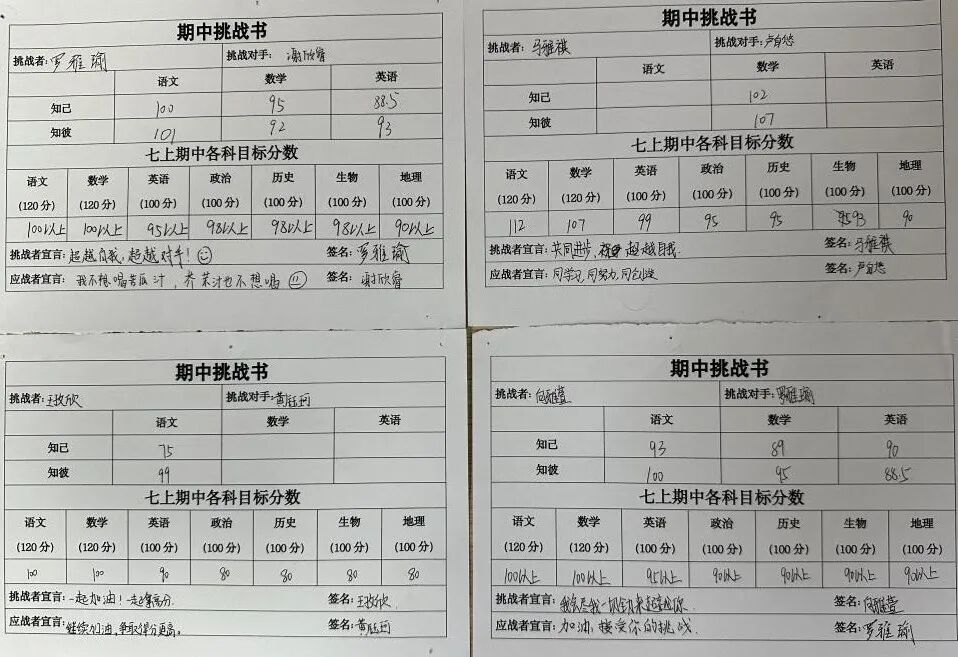 期中挑战书
挑战者：罗雅瑜 挑战对手：谢欣睿
语文 数学 英语
知己 100 95 88.5
知彼 101 92 93
七上期中各科目标分数
语文 数学 英语 政治 历史 生物 地理
(120分) (120分) (100分) (100分) (100分) (100分) (100分)
100以上 100以上 95以上 98以上 98以上 98以上 90以上
挑战者宣言：超越自我，超越对手！ 签名：罗雅瑜
应战者宣言：我不想喝苦瓜汁，芥菜汁也不想喝 签名：谢欣睿
期中挑战书
挑战者：马雅祺 挑战对手：卢自悠
语文 数学 英语
知己 102
知彼 107
七上期中各科目标分数
语文 数学 英语 政治 历史 生物 地理
(120分) (120分) (100分) (100分) (100分) (100分) (100分)
112 107 99 95 95 93 90
挑战者宣言：共同进步，超越自我. 签名：马雅祺
应战者宣言：同学习，同努力，同创造 签名：卢自悠
期中挑战书
挑战者：王玫欣 挑战对手：黄钰珂
语文 数学 英语
知己 75
知彼 99
七上期中各科目标分数
语文 数学 英语 政治 历史 生物 地理
(120分) (120分) (100分) (100分) (100分) (100分) (100分)
100 100 90 80 80 80 80
挑战者宣言：一起加油！一起拿高分. 签名：王玫欣
应战者宣言：继续加油，争取得分更高。 签名：黄钰珂
期中挑战书
挑战者：向雅萱 挑战对手：罗雅瑜
语文 数学 英语
知己 93 89 90
知彼 100 95 88.5
七上期中各科目标分数
语文 数学 英语 政治 历史 生物 地理
(120分) (120分) (100分) (100分) (100分) (100分) (100分)
100以上 100以上 95以上 90以上 90以上 90以上 90以上
挑战者宣言：我会尽我一切全力来超越你. 签名：向雅萱
应战者宣言：加油，接受你的挑战. 签名：罗雅瑜